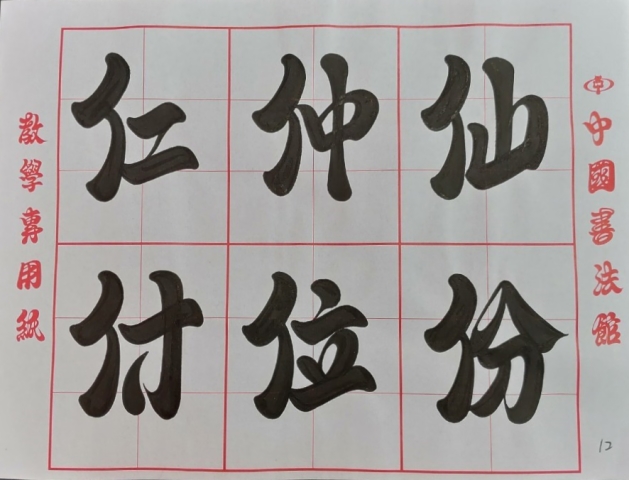 仁仲仙
付位份
教學專用紙
中國書法館
12